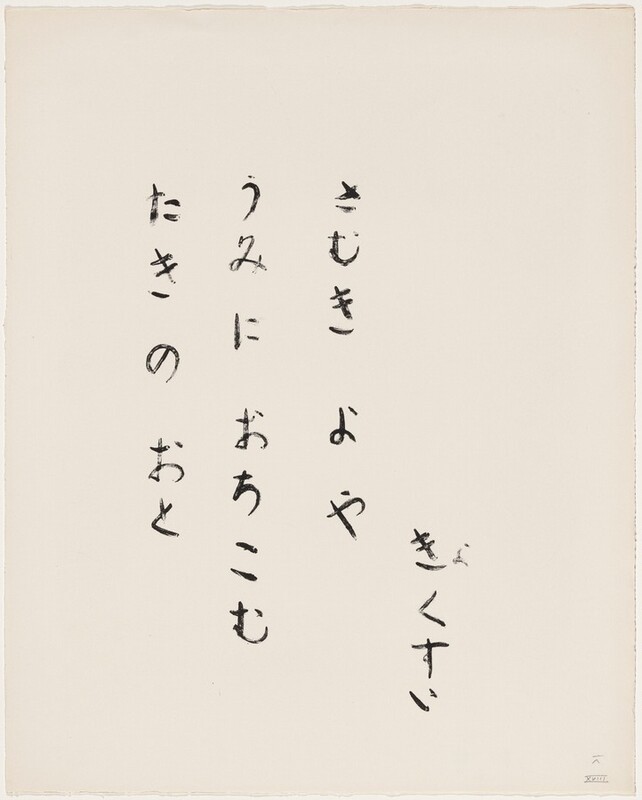 ぎょくすい
さむき よや
うみに おちこむ
たきの おと
XVIII